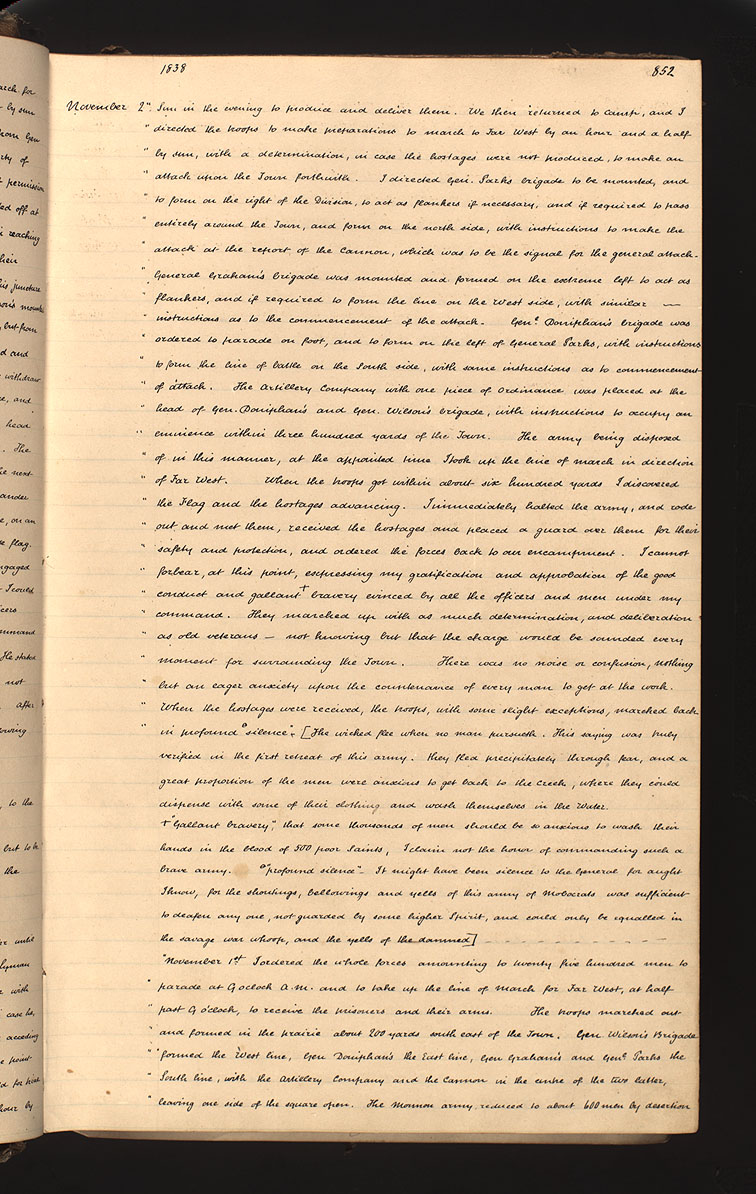 1838
852
November 2nd. Sun in the evening to produce and deliver them. We then returned to camp, and I
" directed the troops to make preparations to march to Far West by an hour and a half
" by sun, with a determination, in case the hostages were not produced, to make an
" attack upon the Town forthwith. I directed Gen. Parks brigade to be mounted, and
" to form on the right of the Division, to act as flankers if necessary, and if required to pass
" entirely around the Town, and form on the north side, with instructions to make the
" attack at the report of the Cannon, which was to be the signal for the general attack.
" General Graham's brigade was mounted and formed on the extreme left to act as
" flankers, and if required to form the line on the West side, with similar —
" instructions as to the commencement of the attack. Genl. Doniphan's brigade was
" ordered to parade on foot, and to form on the left of General Parks, with instructions
" to form the line of battle on the South side, with same instructions as to commencement
" of attack. The Artillery Company with one piece of Ordinance was placed at the
" head of Gen. Doniphan's and Gen. Wilson's brigade, with instructions to occupy an
" eminence within three hundred yards of the Town. The army being disposed
" of in this manner, at the appointed time I took up the line of march in direction
" of Far West. When the troops got within about six hundred yards I discovered
" the Flag and the hostages advancing. I immediately halted the army, and rode
" out and met them, received the hostages and placed a guard over them for their
" safety and protection, and ordered the forces back to our encampment. I cannot
" forbear, at this point, expressing my gratification and approbation of the good
" conduct and gallant + bravery evinced by all the officers and men under my
" command. They marched up with as much determination, and deliberation
" as old veterans — not knowing but that the charge would be sounded every
" moment for surrounding the Town. There was no noise or confusion, nothing
" but an eager anxiety upon the countenance of every man to get at the work.
" When the hostages were received, the troops, with some slight exceptions, marched back
" in profound o silence". [The wicked flee when no man pursueth. This saying was truly
verified in the first retreat of this army. they fled precipitately through fear, and a
great proportion of the men were anxious to get back to the creek, where they could
dispense with some of their clothing and wash themselves in the Water.
+ "Gallant bravery", that some thousands of men should be so anxious to wash their
hands in the blood of 500 poor Saints, I claim not the honor of commanding such a
brave army. o "profound silence" - It might have been silence to the General for aught
I know, for the shoutings, bellowings and yells of this army of Mobocrats was sufficient
to deafen any one, not guarded by some higher Spirit, and could only be equalled in
the savage war whoop, and the yells of the damned]
"November 1st I ordered the whole forces amounting to twenty five hundred men to
" parade at 9 oclock A.M. and to take up the line of March for Far West, at half
" past 9 o'clock, to receive the prisoners and their arms. The troops marched out
" and formed in the prairie about 200 yards south east of the Town. Gen Wilson's Brigade
" formed the West line, Gen Doniphan's the East line, Gen Graham's and Genl. Parks the
" South line, with the Artillery Company and the Cannon in the centre of the two latter,
" leaving one side of the square open. The Mormon army, reduced to about 600 men by desertion